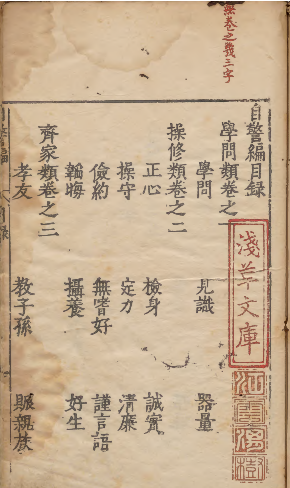 無卷之幾三字
自警編目録
學問類卷之一
學問 見識 器量
操修類卷之二
正心 檢身 誠實
操守 定力 清廉
儉約 無嗜好 謹言語
韜晦 攝養 好生
齊家類卷之三
孝友 教子孫 賑親族
淺草文庫